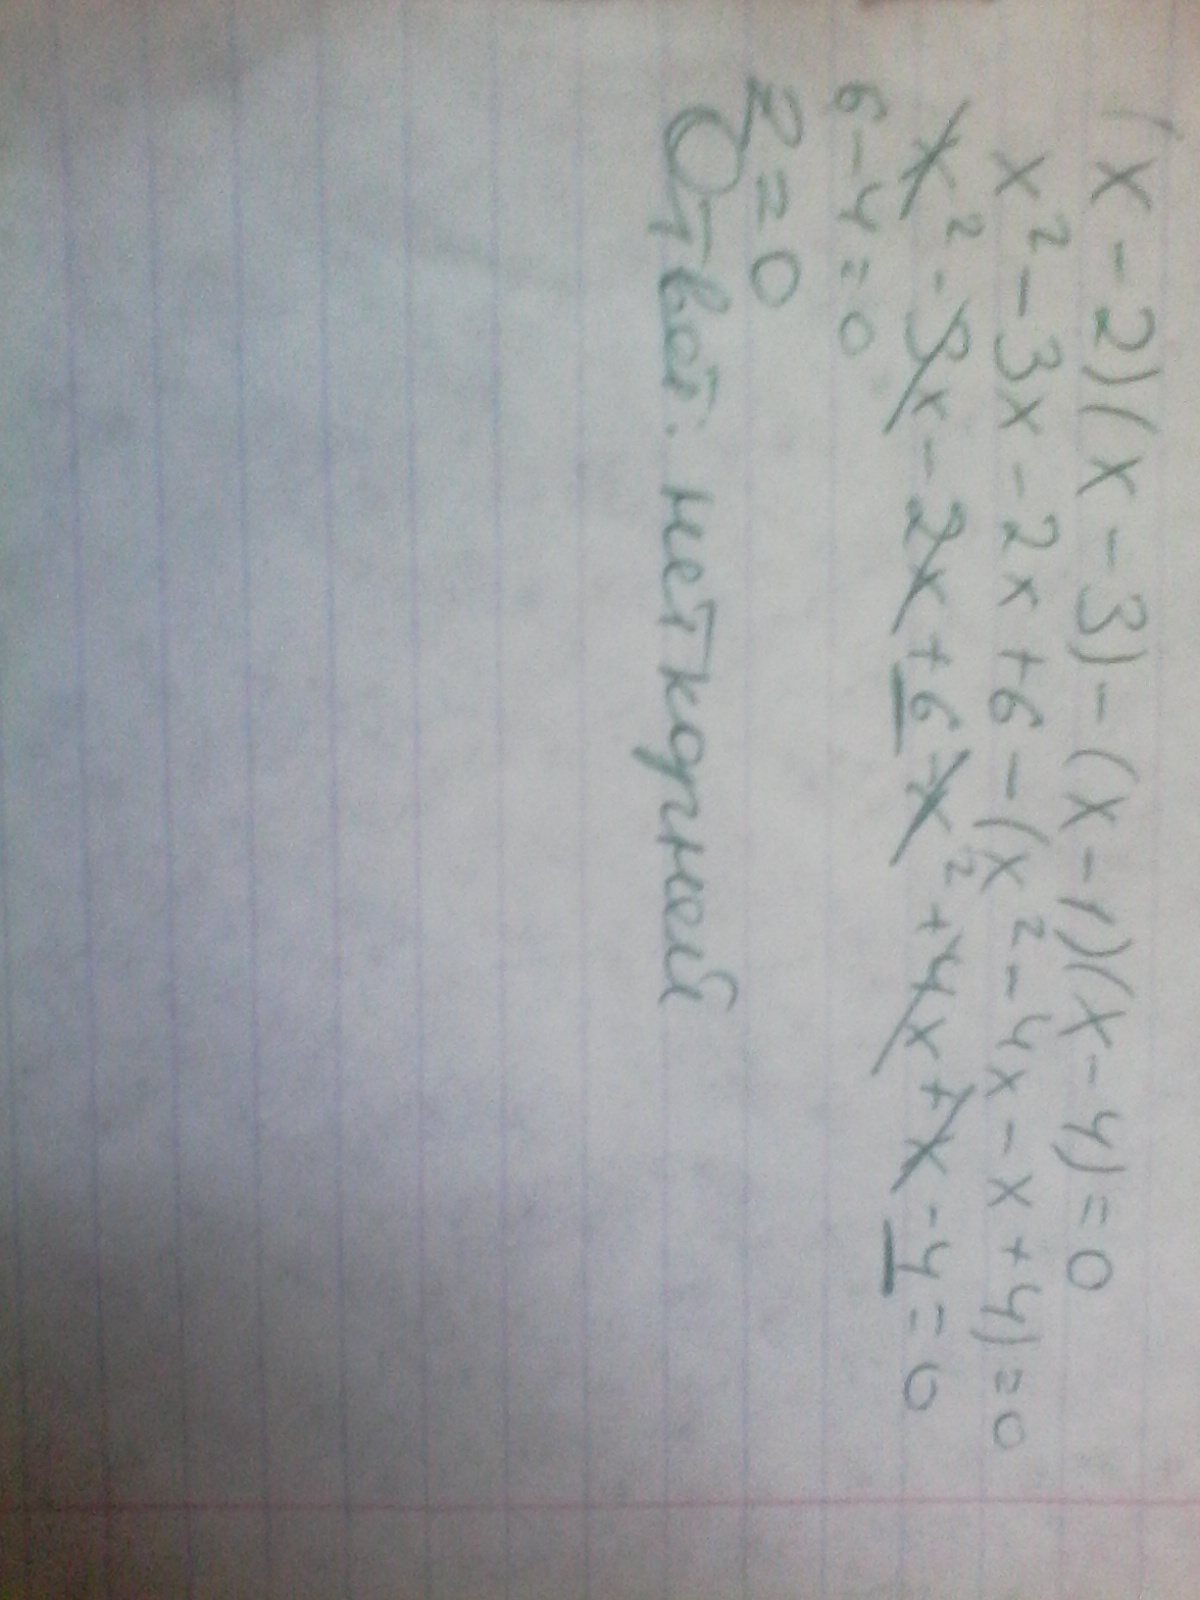 (x-2)(x-3)-(x-1)(x-4)=0
x²-3x-2x+6-(x²-4x-x+4)=0
x²-3x-2x+6-x²+4x+x-4=0
6-4=0
2=0
Ответ: нет корней